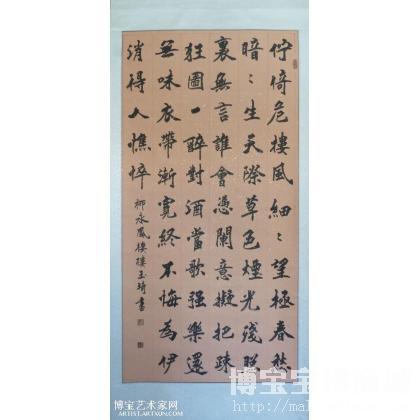 佇倚危樓風細〻望極春愁
暗〻生天際草色煙光殘照
裏無言誰會憑闌意擬把疎
狂圖一醉對酒當歌强樂還
無味衣帶漸寬終不悔為伊
消得人憔悴
柳永鳳 書
博宝艺术家网
博宝
http://